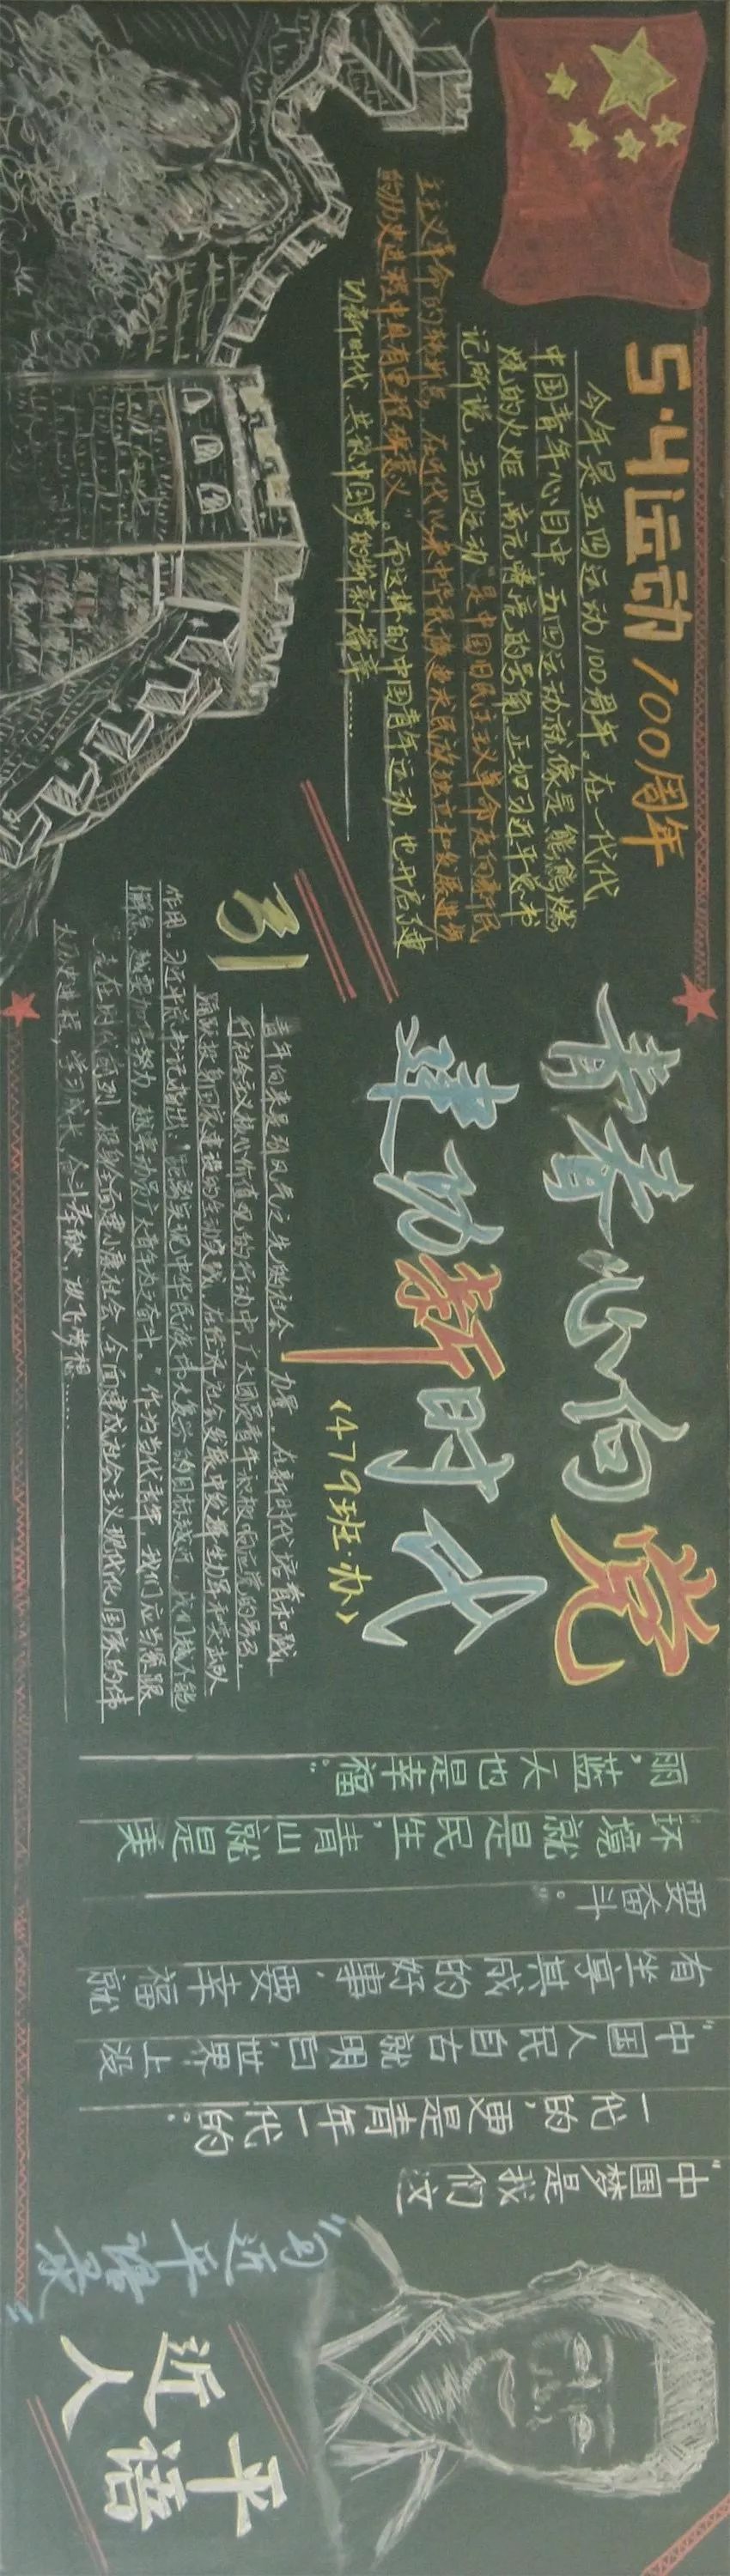 5·4运动100周年
今年是五四运动100周年。在一代代
中国青年心目中,五四运动就像是熊熊燃
烧的火炬,高亢嘹亮的号角。正如习近平总书
记所说,五四运动“是中国旧民主主义革命走向新民
主主义革命的转折点,在近代以来中华民族追求民族独立和发展进步
的历史进程中具有里程碑意义”。而这样的中国青年运动,也开启了建
功新时代、共筑中国梦的崭新篇章……
青春心向党
建功新时代
《479班·办》
引
青年向来是引风气之先的社会力量。在新时代培育和践
行社会主义核心价值观的行动中,广大团员青年积极响应党的号召,
踊跃投身国家建设的生动实践,在经济社会发展中发挥生力军和突击队
作用。习近平总书记指出:“距离实现中华民族伟大复兴的目标越近,我们越不能
懈怠,越要加倍努力,越要动员广大青年为之奋斗。”作为当代青年,我们应当紧跟
走在时代前列,投身全面建小康社会、全面建成社会主义现代化国家的伟
大历史进程,学习成长,奋斗奉献,放飞梦想……
“中国梦是我们这
一代的,更是青年一代的。”
“中国人民自古就明白,世界上没
有坐享其成的好事,要幸福就
要奋斗。”
“环境就是民生,青山就是美
丽,蓝天也是幸福。”
“习近平语录”
平语
近人